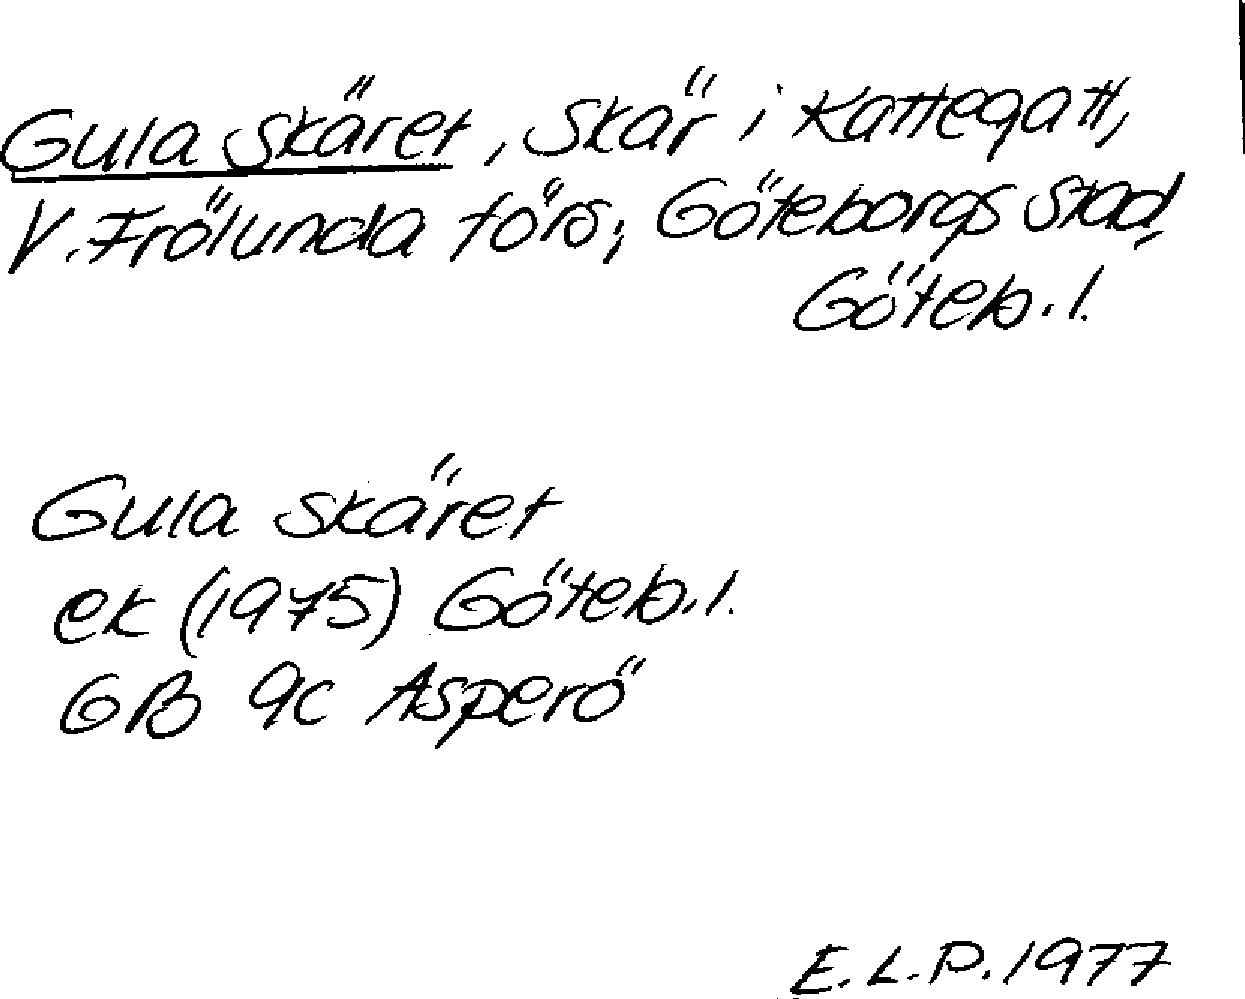 Gula Skäret, Skär i Kattegatt,
V. Frölunda förs; Göteborgs stad,
Göteb. l.
Gula skäret
ek (1975) Göteb. l.
GB 9c Asperö
E. L. P. 1977